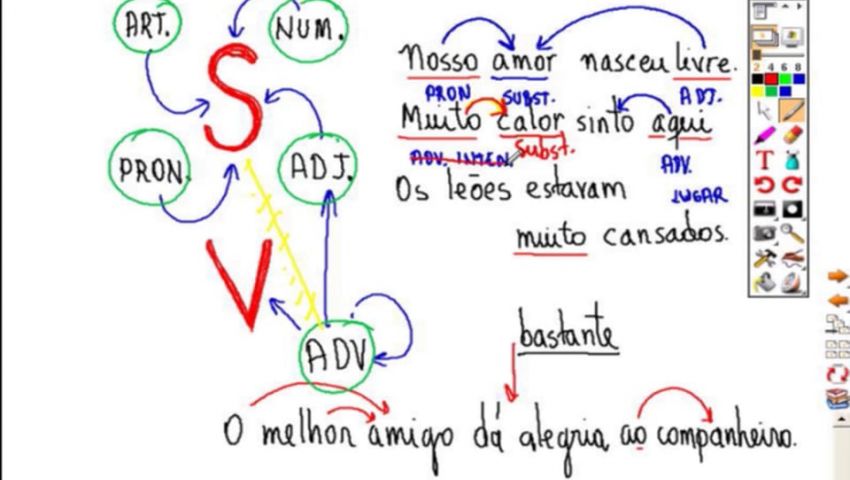 ART.
NUM.
S
PRON.
ADJ.
V
ADV
Nosso amor nasceu livre.
PRON SUBST. ADJ.
Muito calor sinto aqui
ADV. INTEN. Subst. ADV.
LUGAR
Os leões estavam
muito cansados.
bastante
O melhor amigo dá alegria ao companheiro.
2 4 6 8
T